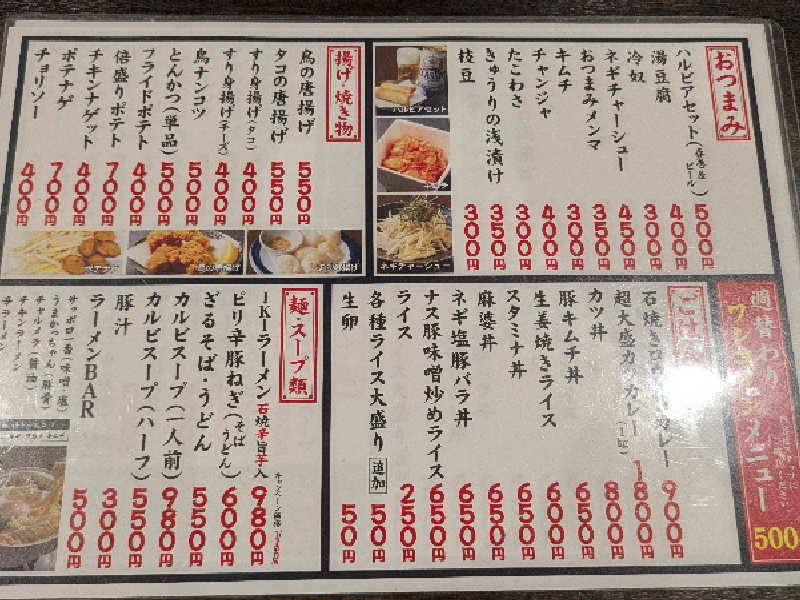 おつまみ
ハルピアセット(春巻&ビール) 500円
湯豆腐 400円
冷奴 300円
ネギチャーシュー 450円
おつまみメンマ 350円
キムチ 300円
チャンジャ 400円
たこわさ 300円
きゅうりの浅漬け 350円
枝豆 300円
ハルピアセット
ネギチャーシュー
揚げ・焼き物
鳥の唐揚げ 550円
タコの唐揚げ 550円
すり身揚げ(タコ) 400円
すり身揚げ(チーズ) 400円
鳥ナンコツ 500円
とんかつ(単品) 500円
フライドポテト 400円
倍盛りポテト 700円
チキンナゲット 400円
ポテナゲ 700円
チョリソー 400円
週替わり
ワンコインメニュー
500
ご
石焼き カレー 900円
超大盛カツカレー(1kg) 1800円
カツ丼 800円
豚キムチ丼 600円
生姜焼きライス 600円
スタミナ丼 650円
麻婆丼 650円
ネギ塩豚バラ丼 650円
ナス豚味噌炒めライス 650円
ライス 250円
各種ライス大盛り 追加 50円
生卵 50円
麺・スープ類
1K1ラーメン 石焼辛旨芋入 980円
ピリ辛豚ねぎ(そば うどん) 600円
ざるそば・うどん 550円
カルビスープ(一人前) 980円
カルビスープ(ハーフ) 550円
豚汁 300円
ラーメンBAR 500円
サッポロ一番(味噌 塩)
うまかっちゃん(豚骨)
チャルメラ(醤油)
チキンラーメン